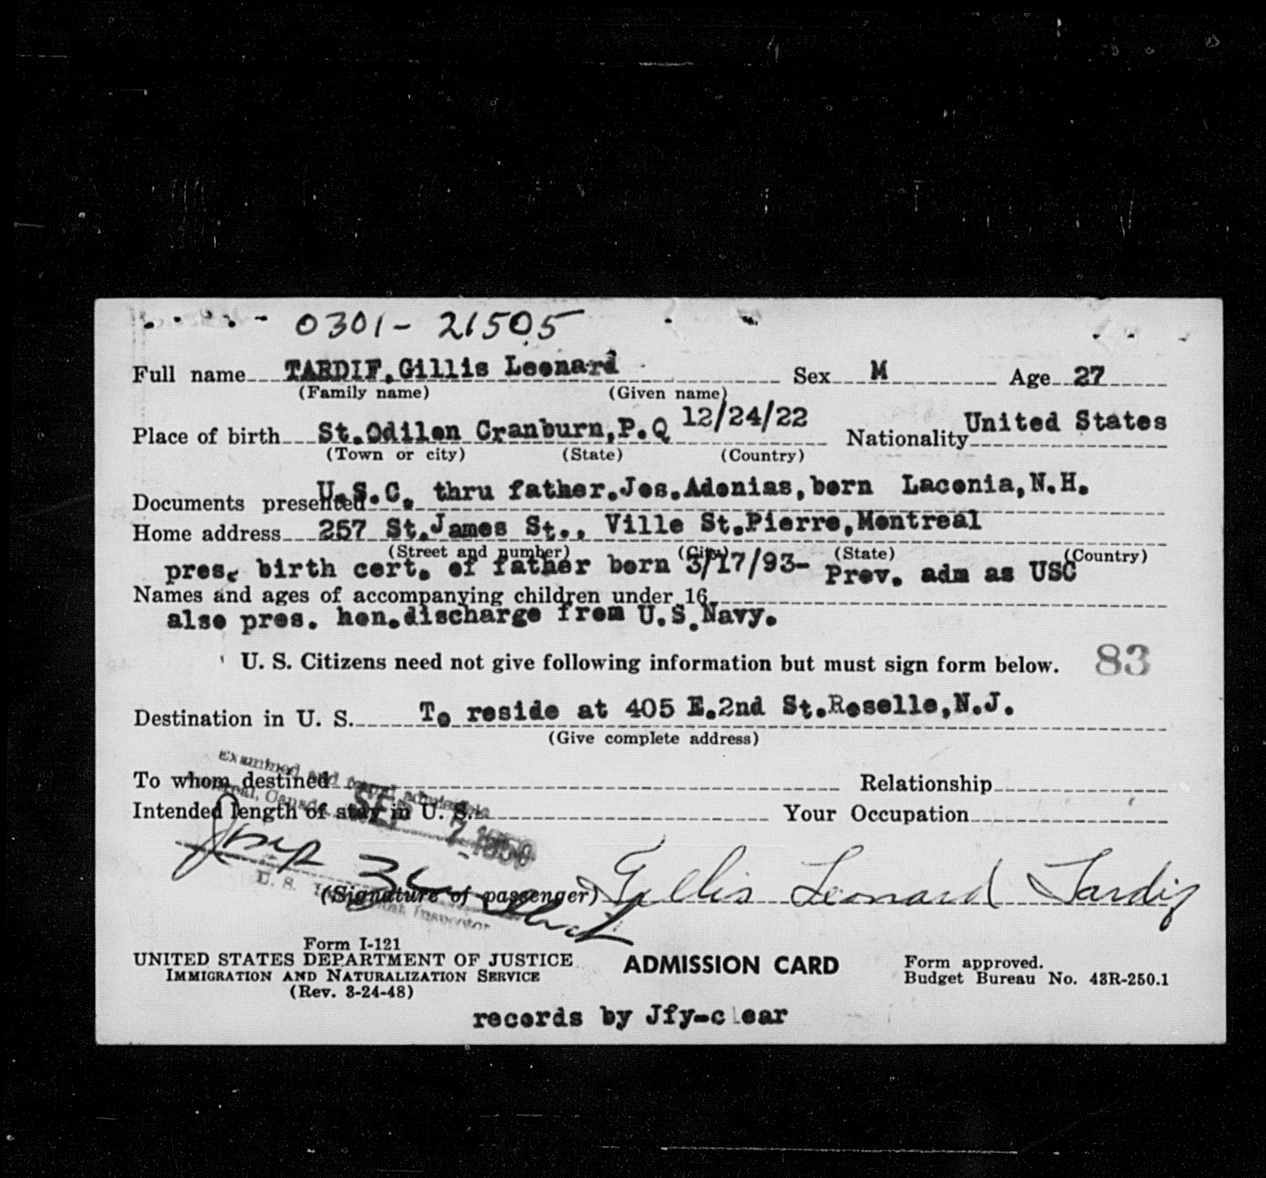 0301- 21505
Full name TARDIF,Gillis Leonard Sex M Age 27
(Family name) (Given name)
Place of birth St.Odilon Cranburn,P.Q 12/24/22 Nationality United States
(Town or city) (State) (Country)
Documents presented U.S.C. thru father.Jos.Adonias,born Laconia,N.H.
Home address 257 St.James St., Ville St.Pierre,Montreal
(Street and number) (City) (State) (Country)
pres. birth cert. of father born 3/17/93- Prev. adm as USC
Names and ages of accompanying children under 16
also pres. hon.discharge from U.S.Navy.
U. S. Citizens need not give following information but must sign form below. 83
Destination in U. S. To reside at 405 E.2nd St.Roselle,N.J.
(Give complete address)
Examined and
To whom destined Relationship
Canada SEP 7 1950
Intended length of stay in U. S. Your Occupation
(Signature of passenger) Gillis Leonard Tardif
U. S. Inspector
Form I-121
UNITED STATES DEPARTMENT OF JUSTICE ADMISSION CARD Form approved.
IMMIGRATION AND NATURALIZATION SERVICE Budget Bureau No. 43R-250.1
(Rev. 3-24-48)
records by Jfy-clear